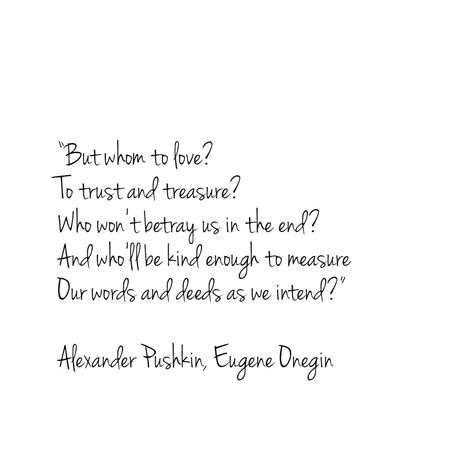 "But whom to love?
To trust and treasure?
Who won't betray us in the end?
And who'll be kind enough to measure
Our words and deeds as we intend?"
Alexander Pushkin, Eugene Onegin